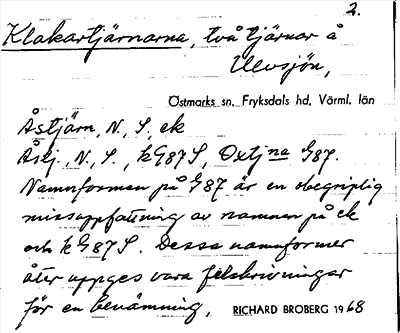 2.
Klakartjärnarna, två tjärnar å
Ulvsjön,
Östmarks sn, Fryksdals hd, Värml. län
Åstjärn, N., S, ek
Åstj., N., S., k G87 S, Oxtjna G87.
Namnformen på G87 är en obegriplig
missuppfattning av namnen på ek
och k G87 S. Dessa namnformer
åter uppges vara felskrivningar
för en benämning,
RICHARD BROBERG 1968